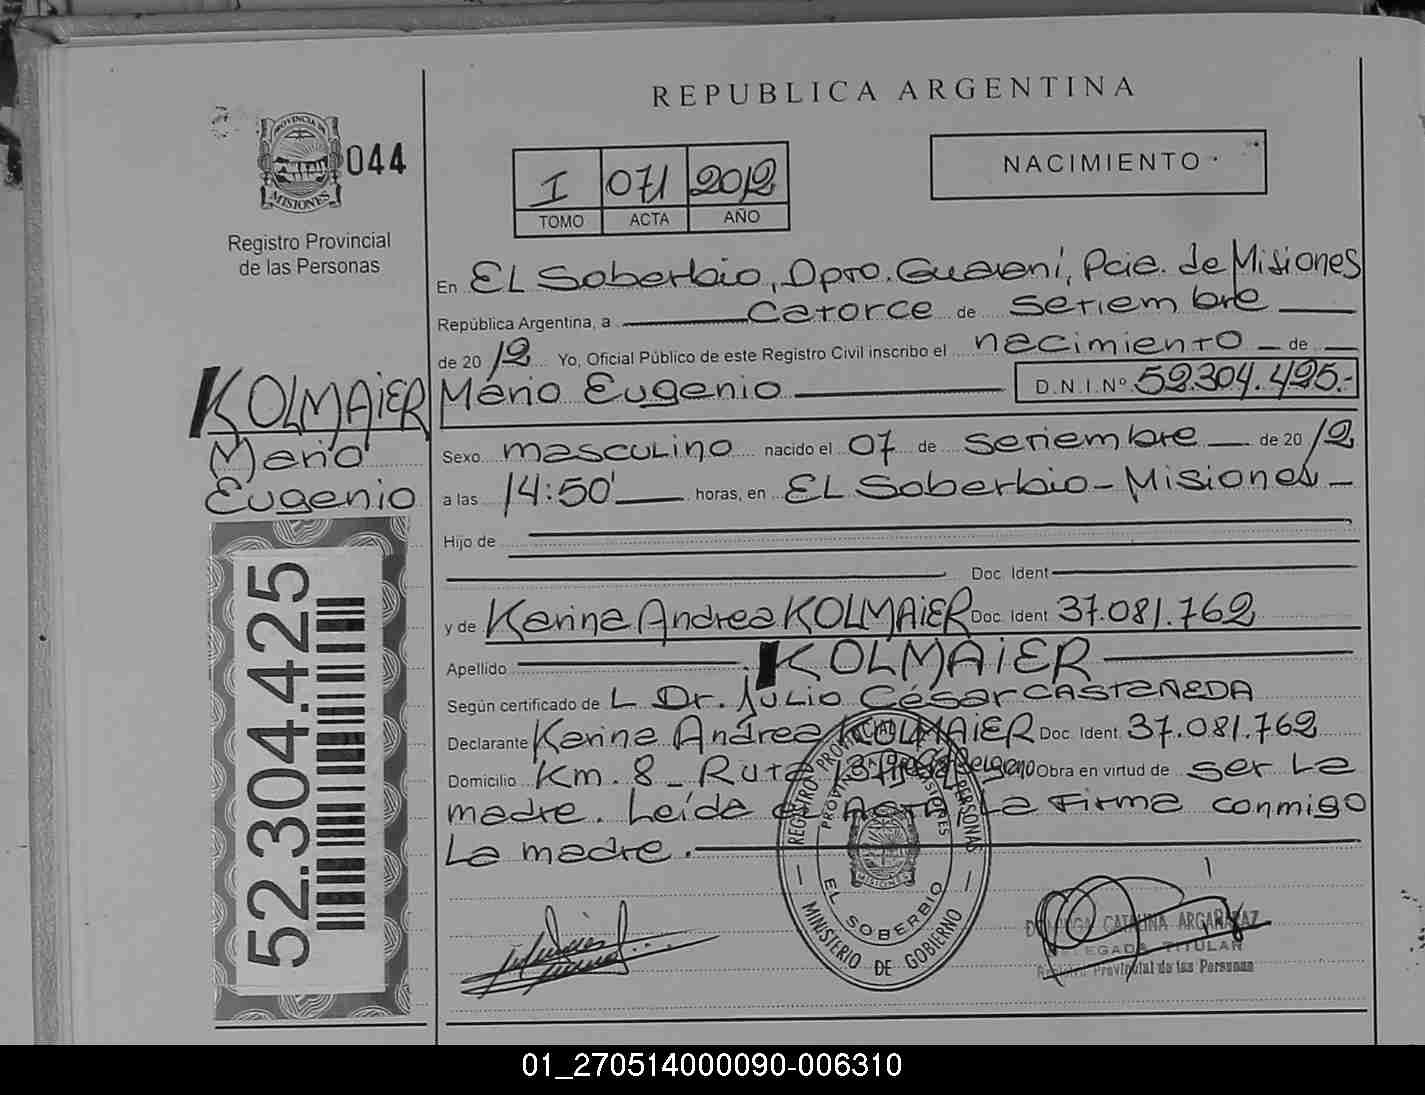 REPUBLICA ARGENTINA
PROVINCIA DE
MISIONES
044
Registro Provincial
de las Personas
I 071 2012
TOMO ACTA AÑO
NACIMIENTO
En EL Soberbio, Dpto. Guaraní, Pcia. de Misiones
República Argentina, a catorce de setiembre
de 2012 Yo, Oficial Público de este Registro Civil inscribo el nacimiento de
KOLMAIER Mario Eugenio D.N.I.Nº 52.304.425.-
Mario
Eugenio
Sexo masculino nacido el 07 de setiembre de 2012
a las 14:50' horas, en EL Soberbio - Misiones -
Hijo de
Doc. Ident
y de Karina Andrea KOLMAIER Doc. Ident 37.081.762
Apellido KOLMAIER
Según certificado de L Dr. Julio César CASTAÑEDA
Declarante Karina Andrea KOLMAIER Doc. Ident. 37.081.762
Domicilio Km. 8 - Ruta 13 Obra en virtud de ser La
madre. Leída el Acta, La firma conmigo
La madre.
52.304.425
REGISTRO PROVINCIAL DE LAS PERSONAS
PROVINCIA DE MISIONES
MISIONES
EL SOBERBIO
MINISTERIO DE GOBIERNO
CATALINA ARGAÑARAZ
DELEGADA TITULAR
Registro Provincial de las Personas
01_270514000090-006310